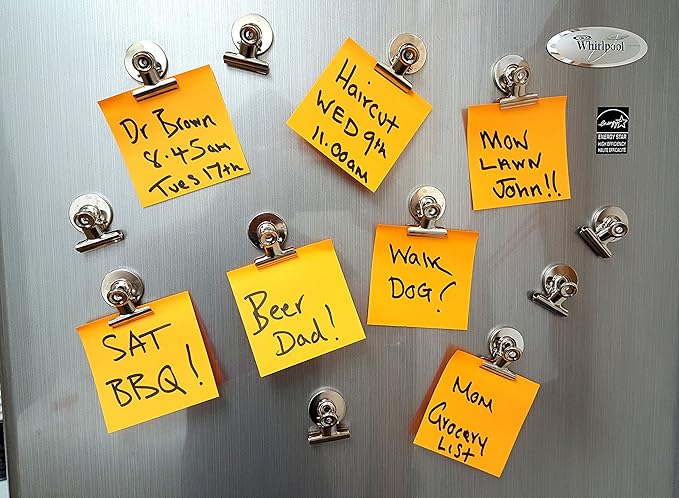 Whirlpool
Dr Brown
8.45am
Tues 17th
Haircut
WED 9th
11.00am
MOW
LAWN
John!!
energy
ENERGY STAR
HIGH EFFICIENCY
HAUTE EFFICACITÉ
SAT
BBQ!
Beer
Dad!
Walk
DOG!
Mom
Grocery
List